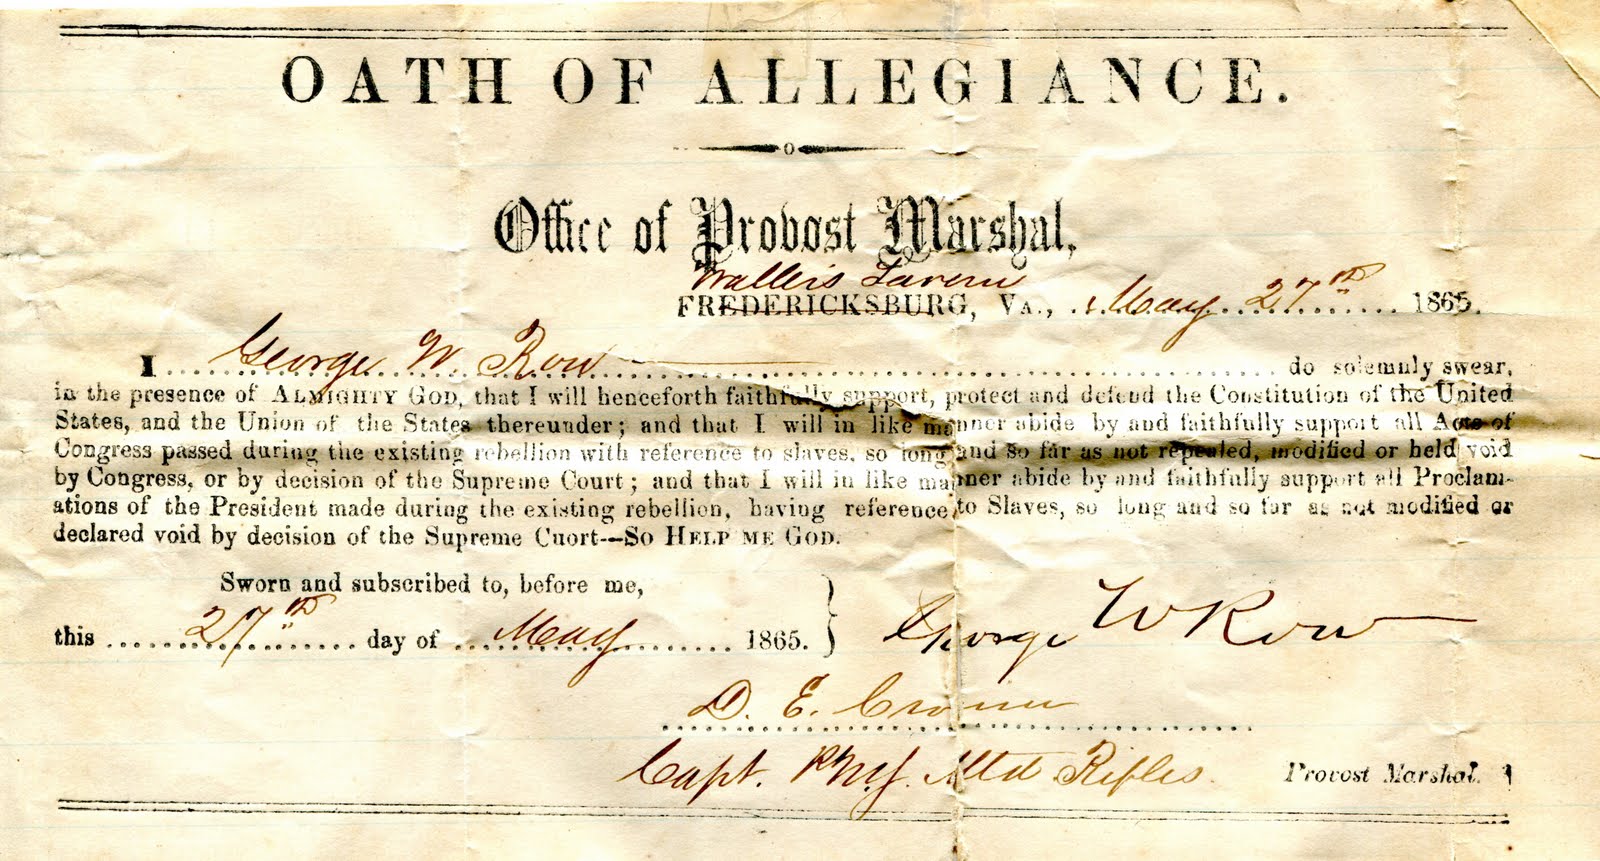 OATH OF ALLEGIANCE.
Office of Provost Marshal,
Wallers Tavern
FREDERICKSBURG, VA., May 27th 1865.
I George W. Row do solemnly swear,
in the presence of ALMIGHTY GOD, that I will henceforth faithfully support, protect and defend the Constitution of the United
States, and the Union of the States thereunder; and that I will in like manner abide by and faithfully support all Acts of
Congress passed during the existing rebellion with reference to slaves, so long and so far as not repealed, modified or held void
by Congress, or by decision of the Supreme Court; and that I will in like manner abide by and faithfully support all Proclam-
ations of the President made during the existing rebellion, having reference to Slaves, so long and so far as not modified or
declared void by decision of the Supreme Cuort--SO HELP ME GOD.
Sworn and subscribed to, before me,
this 27th day of May 1865. } George W Row
D. E. Cronin
Capt. Mtd Rifles Provost Marshal.